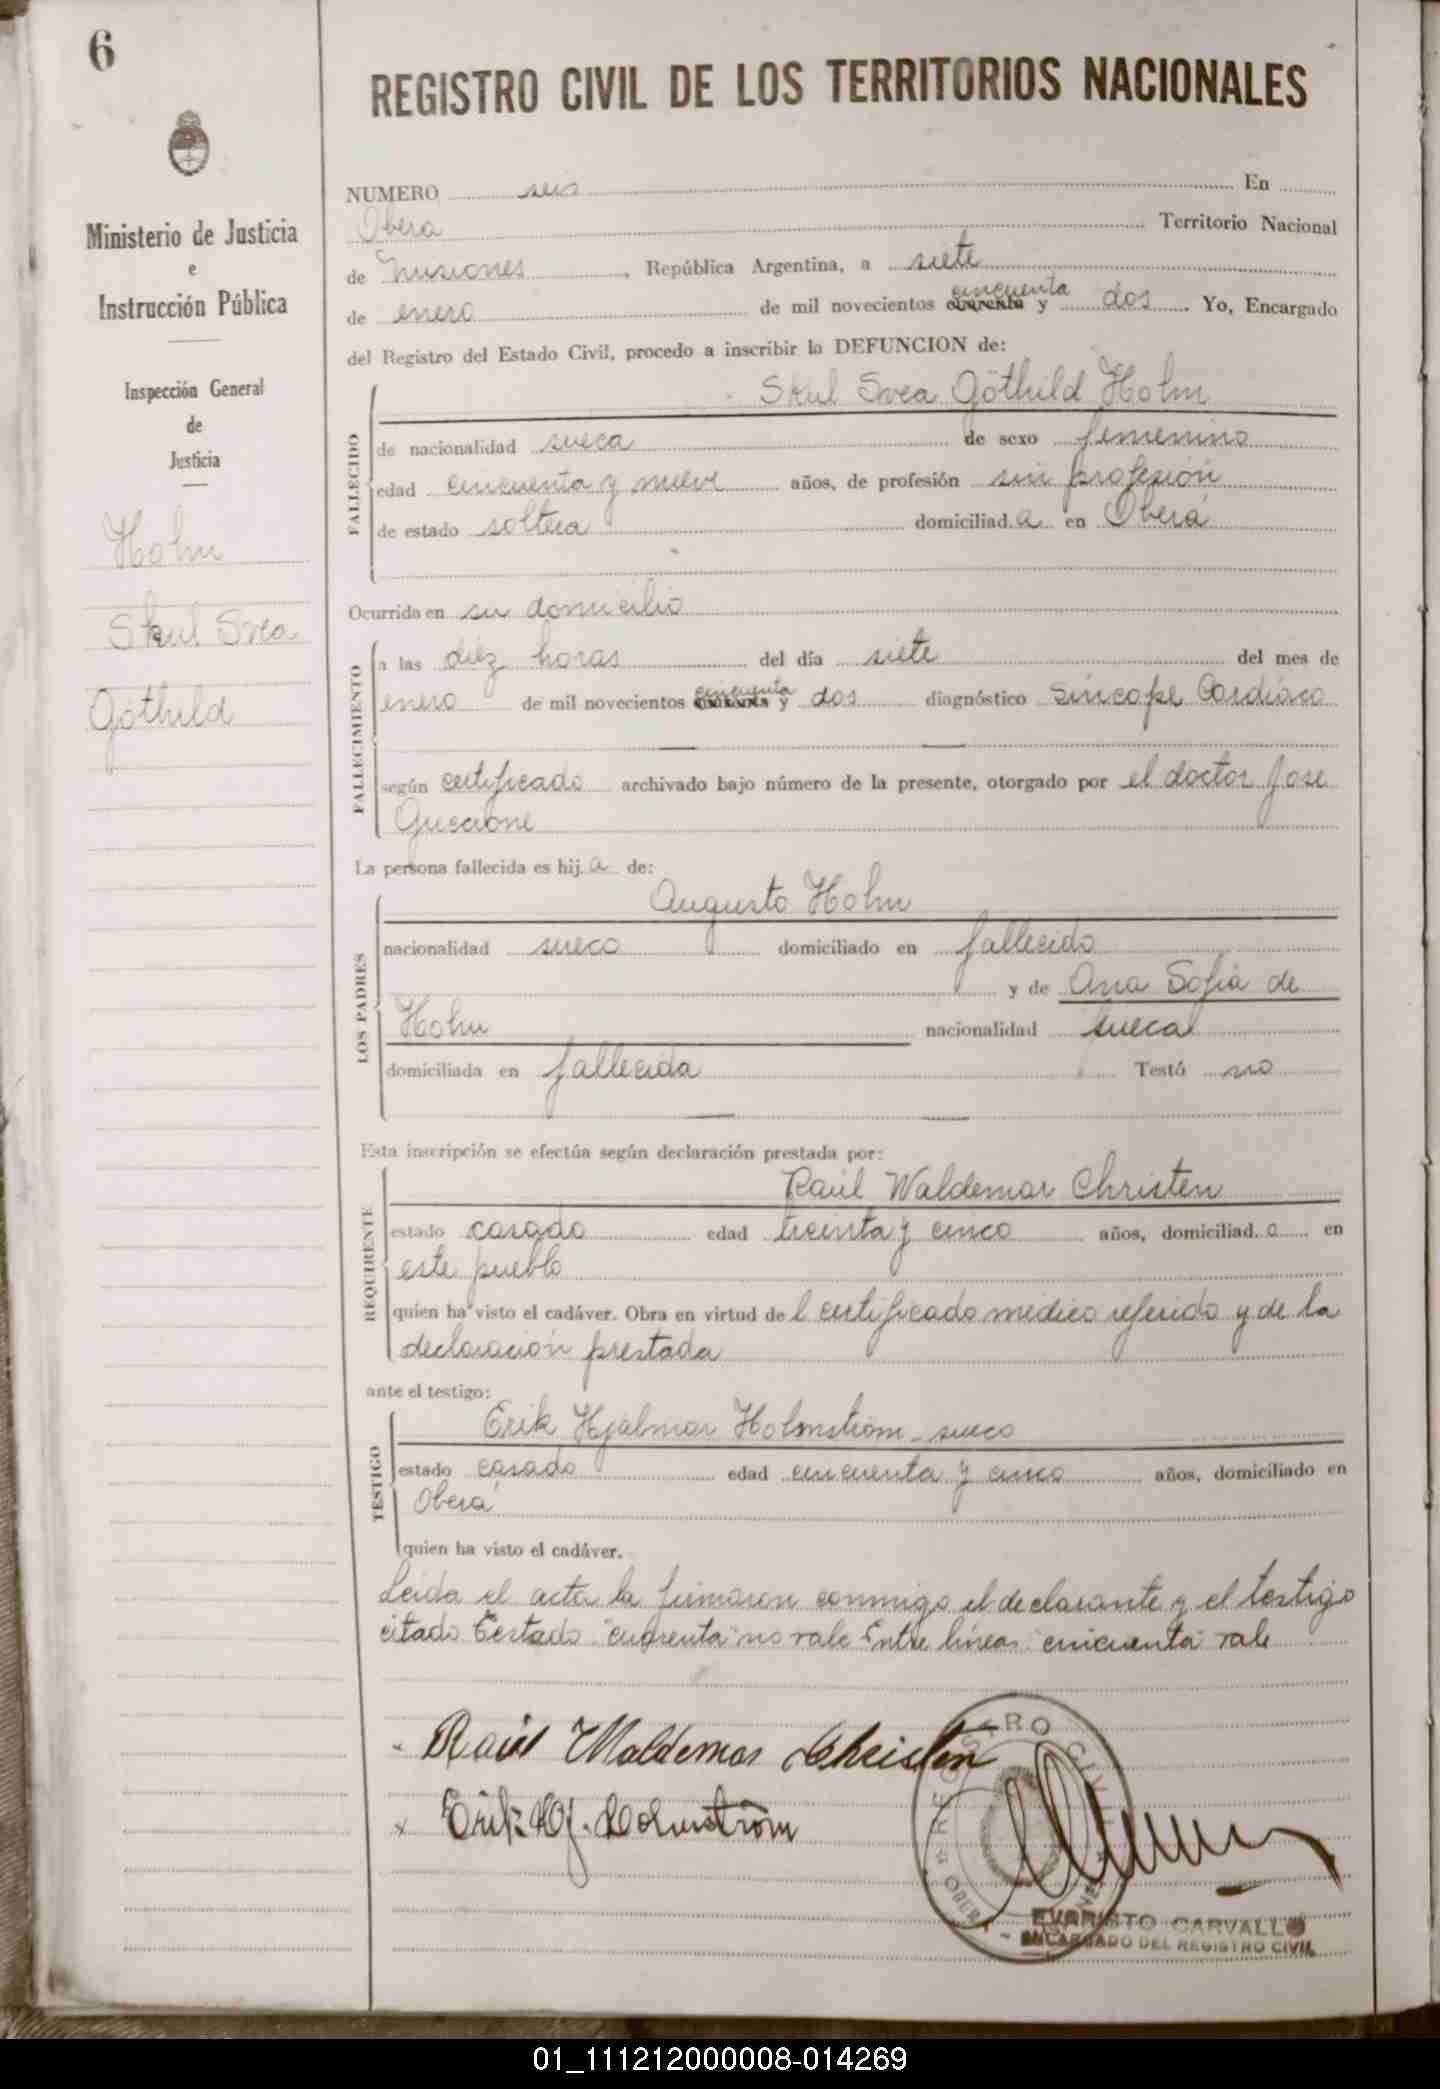 6
REGISTRO CIVIL DE LOS TERRITORIOS NACIONALES
Ministerio de Justicia
e
Instrucción Pública
Inspección General
de
Justicia
Holm
Skul Svea
Gothild
NUMERO seis En
Obera Territorio Nacional
de misiones, República Argentina, a siete
cincuenta
de enero de mil novecientos cuarenta y dos. Yo, Encargado
del Registro del Estado Civil, procedo a inscribir la DEFUNCION de:
FALLECIDO
Skul Svea Göthild Holm
de nacionalidad sueca de sexo femenino
edad cincuenta y nueve años, de profesión sin profesión
de estado soltera domiciliad.a en Oberá
Ocurrida en su domicilio
FALLECIMIENTO
a las diez horas del día siete del mes de
cincuenta
enero de mil novecientos cuarenta y dos diagnóstico Síncope Cardíaco
según certificado archivado bajo número de la presente, otorgado por el doctor Jose
Guccione
La persona fallecida es hij.a de:
LOS PADRES
Augusto Holm
nacionalidad sueco domiciliado en fallecido
y de Ana Sofia de
Holm nacionalidad sueca
domiciliada en fallecida Testó no
Esta inscripción se efectúa según declaración prestada por:
REQUIRENTE
Raúl Waldemar Christen
estado casado edad treinta y cinco años, domiciliad.o en
este pueblo
quien ha visto el cadáver. Obra en virtud de l certificado médico referido y de la
declaración prestada
ante el testigo:
TESTIGO
Erik Hjalmar Holmström - sueco
estado casado edad cincuenta y cinco años, domiciliado en
Oberá
quien ha visto el cadáver.
Leída el acta la firmaron conmigo el declarante y el testigo
citado Testado "cuarenta" no vale Entre líneas "cincuenta" vale
Raúl Waldemar Christen
Erik Hj. Holmström
REGISTRO CIVIL
OBERA
EVARISTO CARVALLO
ENCARGADO DEL REGISTRO CIVIL
01_111212000008-014269